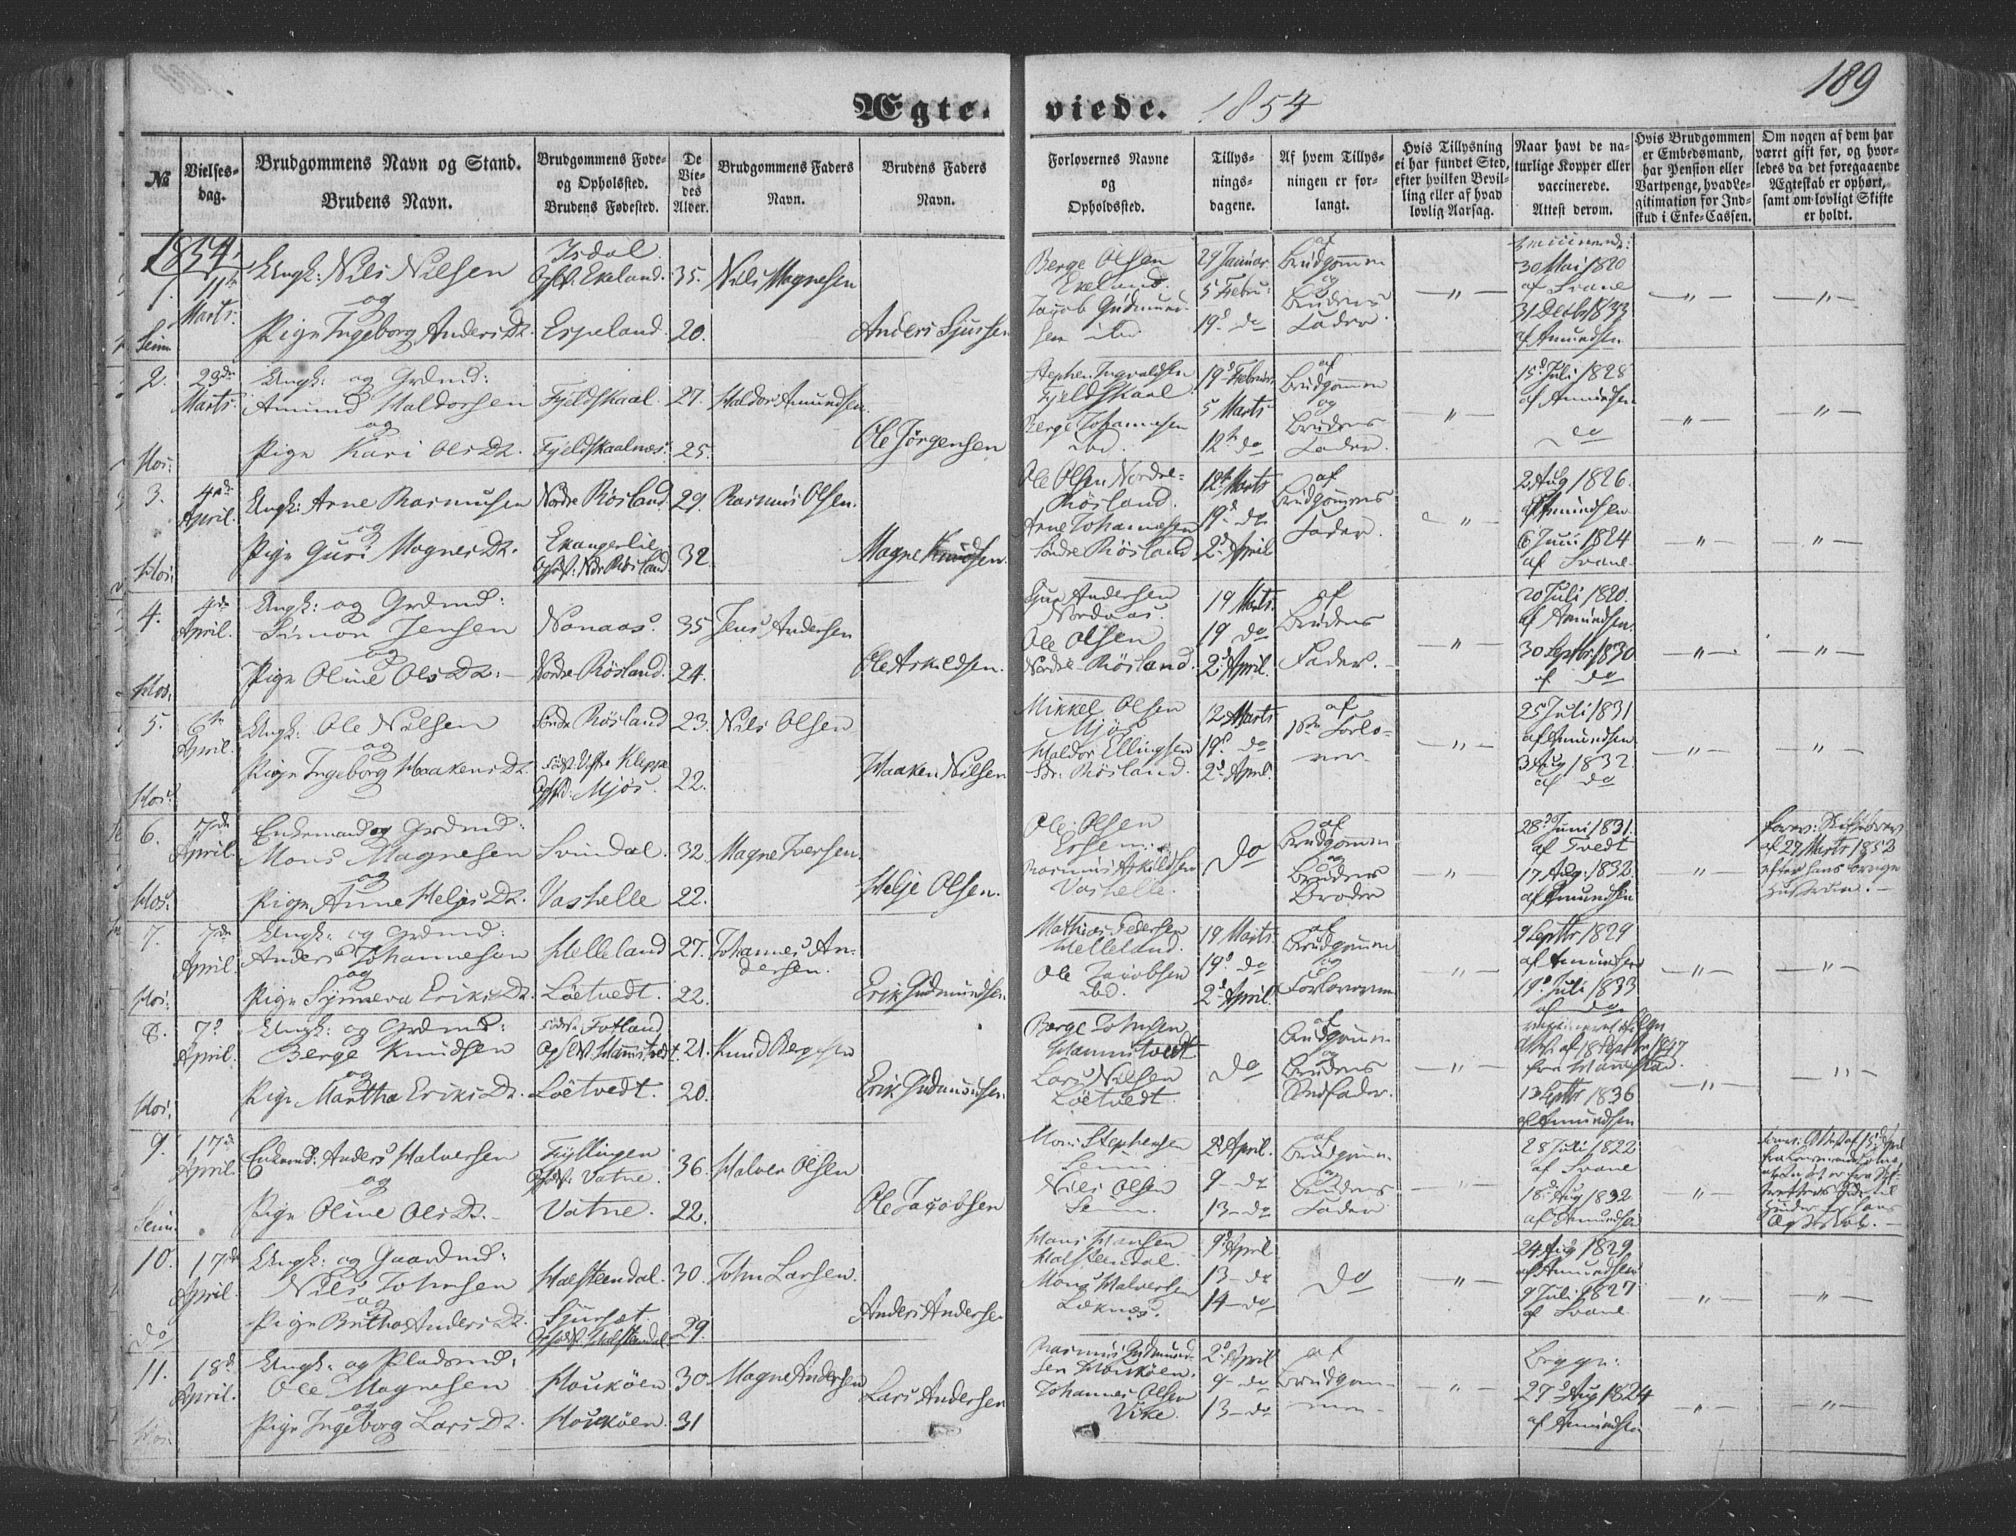 189
Ægte-
viede. 1854
No
Vielses-
dag.
Brudgommens Navn og Stand.
Brudens Navn.
Brudgommens Føde-
og Opholssted.
Brudens Fødested.
De
Vie-
des
Alder.
Brudgommens Faders
Navn.
Brudens Faders
Navn.
Forlovernes Navne
og
Opholdssted.
Tillys-
nings-
dagene.
Af hvem Tillys-
ningen er for-
langt.
Hvis Tillysning
ei har fundet Sted,
efter hvilken Bevil-
ling eller af hvad
lovlig Aarsag.
Naar havt de na-
turlige Kopper eller
vaccinerede.
Attest derom.
Hvis Brudgommen
er Embedsmand,
har Pension eller
Vartpenge, hvad Le-
gitimation for Ind-
skud i Enke-Cassen.
Om nogen af dem har
været gift før, og hvor-
ledes da det foregaaende
Ægteskab er ophørt,
samt om lovligt Skifte
er holdt.
1854.
1. 11te Marts. Seim
Ungk: Nils Nilsen
og
Pige Ingeborg Anders Dr.
Isdal
Opst. Ekeland. 35.
Espeland. 20.
Nils Magnesen
Anders Sjursen
Berge Olsen
Ekeland
Jacob Gudmund-
sen ibd
29 Januar
5 Febru:
19d do
af
Brudgommen
og
Brudens
Fader.
30 Mai 1820
af Svane
31 Decbr 1833
af Amundsen
2. 23de Marts. Hos:
Ungk: og Grdmd:
Amund Haldorsen
og
Pige Kari Ols Dr.
Fjeldskaal. 27.
Fjeldskaalnæs. 25.
Haldor Amundsen.
Ole Jørgensen
Stephen Ingvaldsen
Fjeldskaal
Berge Johannesen
ibd.
19d Februar
5 Marts
12te do
af
Brudgommen
og
Brudens
Fader.
15d Juli 1828
af Amundsen
do
3. 4de April. Hos:
Ungk: Arne Rasmusen
og
Pige Guri Magnes Dr.
Nordre Røsland 29.
Exangerlie
Opst: Ndr Røsland 32.
Rasmus Olsen.
Magne Knudsen.
Ole Olsen Nordre-
Røsland.
Arne Johannesen
Søndre Røsland
12te Marts
19d do
2d April
af
Brudgommens
Fader.
2 Aug 1826.
Amundsen
6 Juni 1824
af Svane
4. 4de April. Hos:
Ungk: og Grdmd:
Simon Jensen
og
Pige Oline Ols Dr.
Nonaas. 35
Nordre Røsland. 24.
Jens Andersen
Ole Askeldsen.
Andersen
Ole Olsen
Nordre Røsland.
19 Marts
19 do
2d April.
af
Brudens
Fader.
20 Juli 1820.
af Amundsen.
30 Septbr 1830
af do
5. 6te April. Hos:
Ungk: Ole Nilsen
og
Pige Ingeborg Haakens Dr.
Søndre Røsland 23.
Kleppe
Opst: Mjøs. 22.
Nils Olsen
Haaken Nilsen
Mikkel Olsen
Mjøs
Haldor Ellingsen
Sdr. Røsland.
12 Marts
19d do
2d April.
af
1ste Forlo-
ver.
25 Juli 1831
af Amundsen
3 Aug 1832.
af do
6. 7de April. Hos:
Enkemand og Grdmd:
Mons Magnesen
og
Pige Anne Heljes Dr.
Svindal. 32.
Vashelle 22.
Magne Iversen.
Helje Olsen.
Ole Olsen
Rasmus Askildsen
Vashelle.
do
af
Brudgommen
og
Brudens
Broder
28d Juni 1831.
af Tvedt
17 Aug. 1832.
af Amundsen
Skiftebrev
af 29 Marts 1853
efter hans forrige
Hustrue.
7. 7de April Hos:
Ungk: og Grdmd:
Anders Johannesen
og
Pige Synneva Eriks Dr.
Helleland 27.
Løetvedt. 22.
Johannes An-
dersen.
Erik Gudmundsen.
Mathias Pedersen
Helleland.
Ole Jacobsen
ibd.
19 Marts
19d do
2d April.
af
Brudgommen
og
Forloveren
9 Septbr 1829
af Amundsen
19d Juli 1833
af do
8. 7d April Hos:
Ungk: og Grdmd:
Berge Knudsen
og
Pige Martha Eriks Dr.
Fotland
Opst Hannistvedt. 21.
Løetvedt. 20.
Knud Bergesen
Erik Gudmundsen.
Berge Johnsen
Hannistvedt
Lars Nilsen
Løetvedt.
do
af
Brudgommen
og
Brudens
Stedfader.
18 Septbr 1847
13 Septbr 1836
af Amundsen
9. 17de April. Seim.
Enkemd: Anders Halversen
og
Pige Oline Ols Dr.
Fyllingen
Opst: Vatne. 36.
Vatne. 22.
Halver Olsen
Ole Jacobsen
Mons Stephensen
Seim
Nils Olsen
Seim.
2d April.
9 - do
13 - do
af
Brudgommen
og
Brudens
Fader.
28 Juli 1822
af Svane
18d Aug 1832
af Amundsen
10. 17de April. do
Ungk: og Gaardmd:
Nils Johnsen
og
Pige Britha Anders Dr.
Halsteendal. 30.
Sjursæt
Opst. Halsteendal 29.
John Larsen.
Anders Andersen
Hans Hansen
Halsteendal.
Mons Halversen
Leknæs.
9d April
13 - do
14 - do
do
24 Aug 1829
af Amundsen
9 Juli 1827
af Svane
11. 18d April. Hos:
Ungk: og Pladsmd:
Ole Magnesen
og
Pige Ingeborg Lars Dr.
Houkøen 30.
Houkøen. 31
Magne Andersen
Lars Andersen
Rasmus Gudmund-
sen Houkøen.
Johannes Olsen
Vike.
2d April
9 - do
13 - do
af
Brudgom-
men.
Begge:
27d Aug 1824
af Amundsen